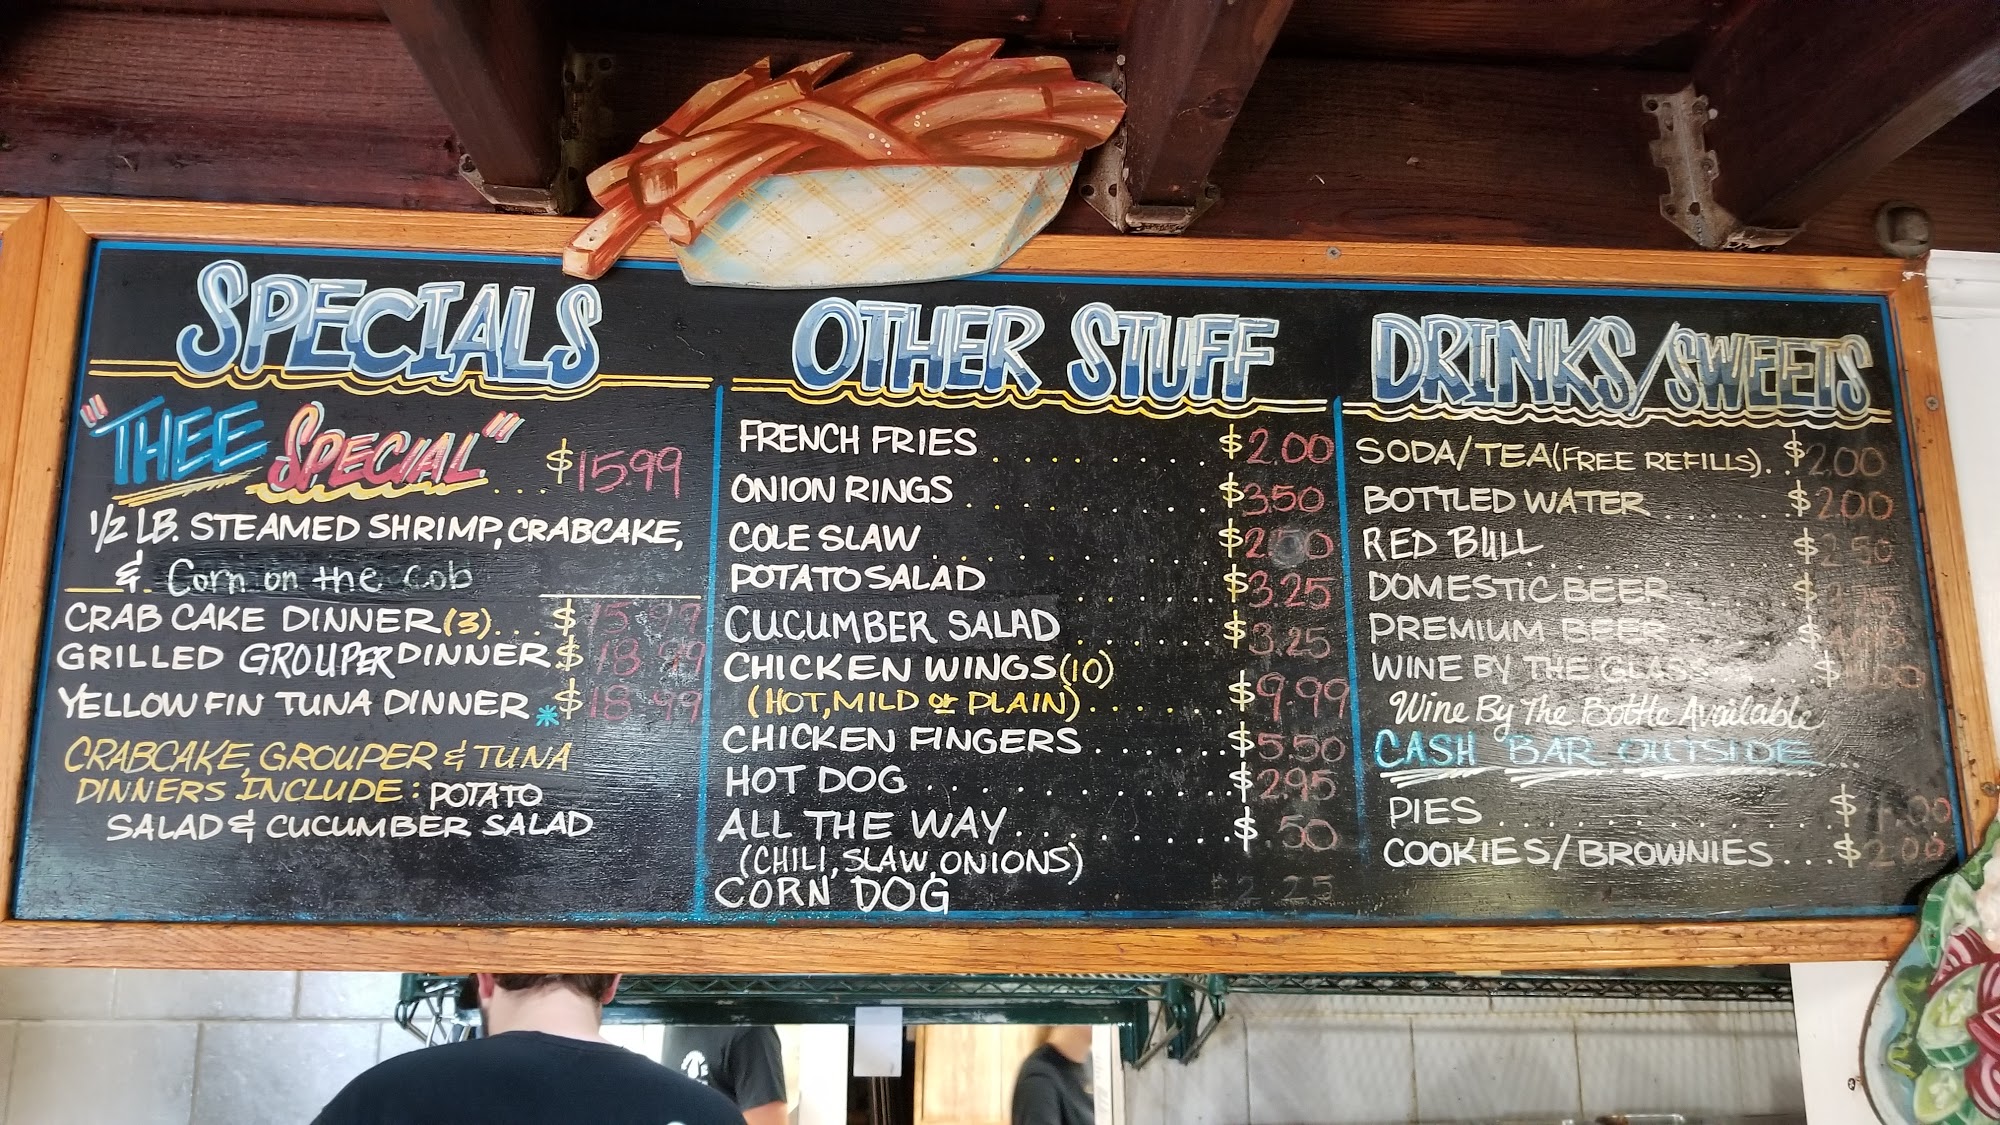 SPECIALS
"THEE SPECIAL" ... $15.99
1/2 LB. STEAMED SHRIMP, CRABCAKE,
& Corn on the cob
CRAB CAKE DINNER (3)... $15.99
GRILLED GROUPER DINNER. $18.99
YELLOW FIN TUNA DINNER * $18.99
CRABCAKE, GROUPER & TUNA
DINNERS INCLUDE: POTATO
SALAD & CUCUMBER SALAD
OTHER STUFF
FRENCH FRIES ........ $2.00
ONION RINGS ........ $3.50
COLE SLAW ........ $2.50
POTATO SALAD ........ $3.25
CUCUMBER SALAD ..... $3.25
CHICKEN WINGS (10)
(HOT, MILD or PLAIN) ...... $9.99
CHICKEN FINGERS ....... $5.50
HOT DOG .......... $2.95
ALL THE WAY ........ $.50
(CHILI, SLAW, ONIONS)
CORN DOG $2.25
DRINKS/SWEETS
SODA/TEA (FREE REFILLS).. $2.00
BOTTLED WATER ...... $2.00
RED BULL ........ $2.50
DOMESTIC BEER ..... $
PREMIUM BEER ..... $
WINE BY THE GLASS ... $
Wine By The Bottle Available
CASH BAR OUTSIDE
PIES ............ $
COOKIES/BROWNIES ... $2.00